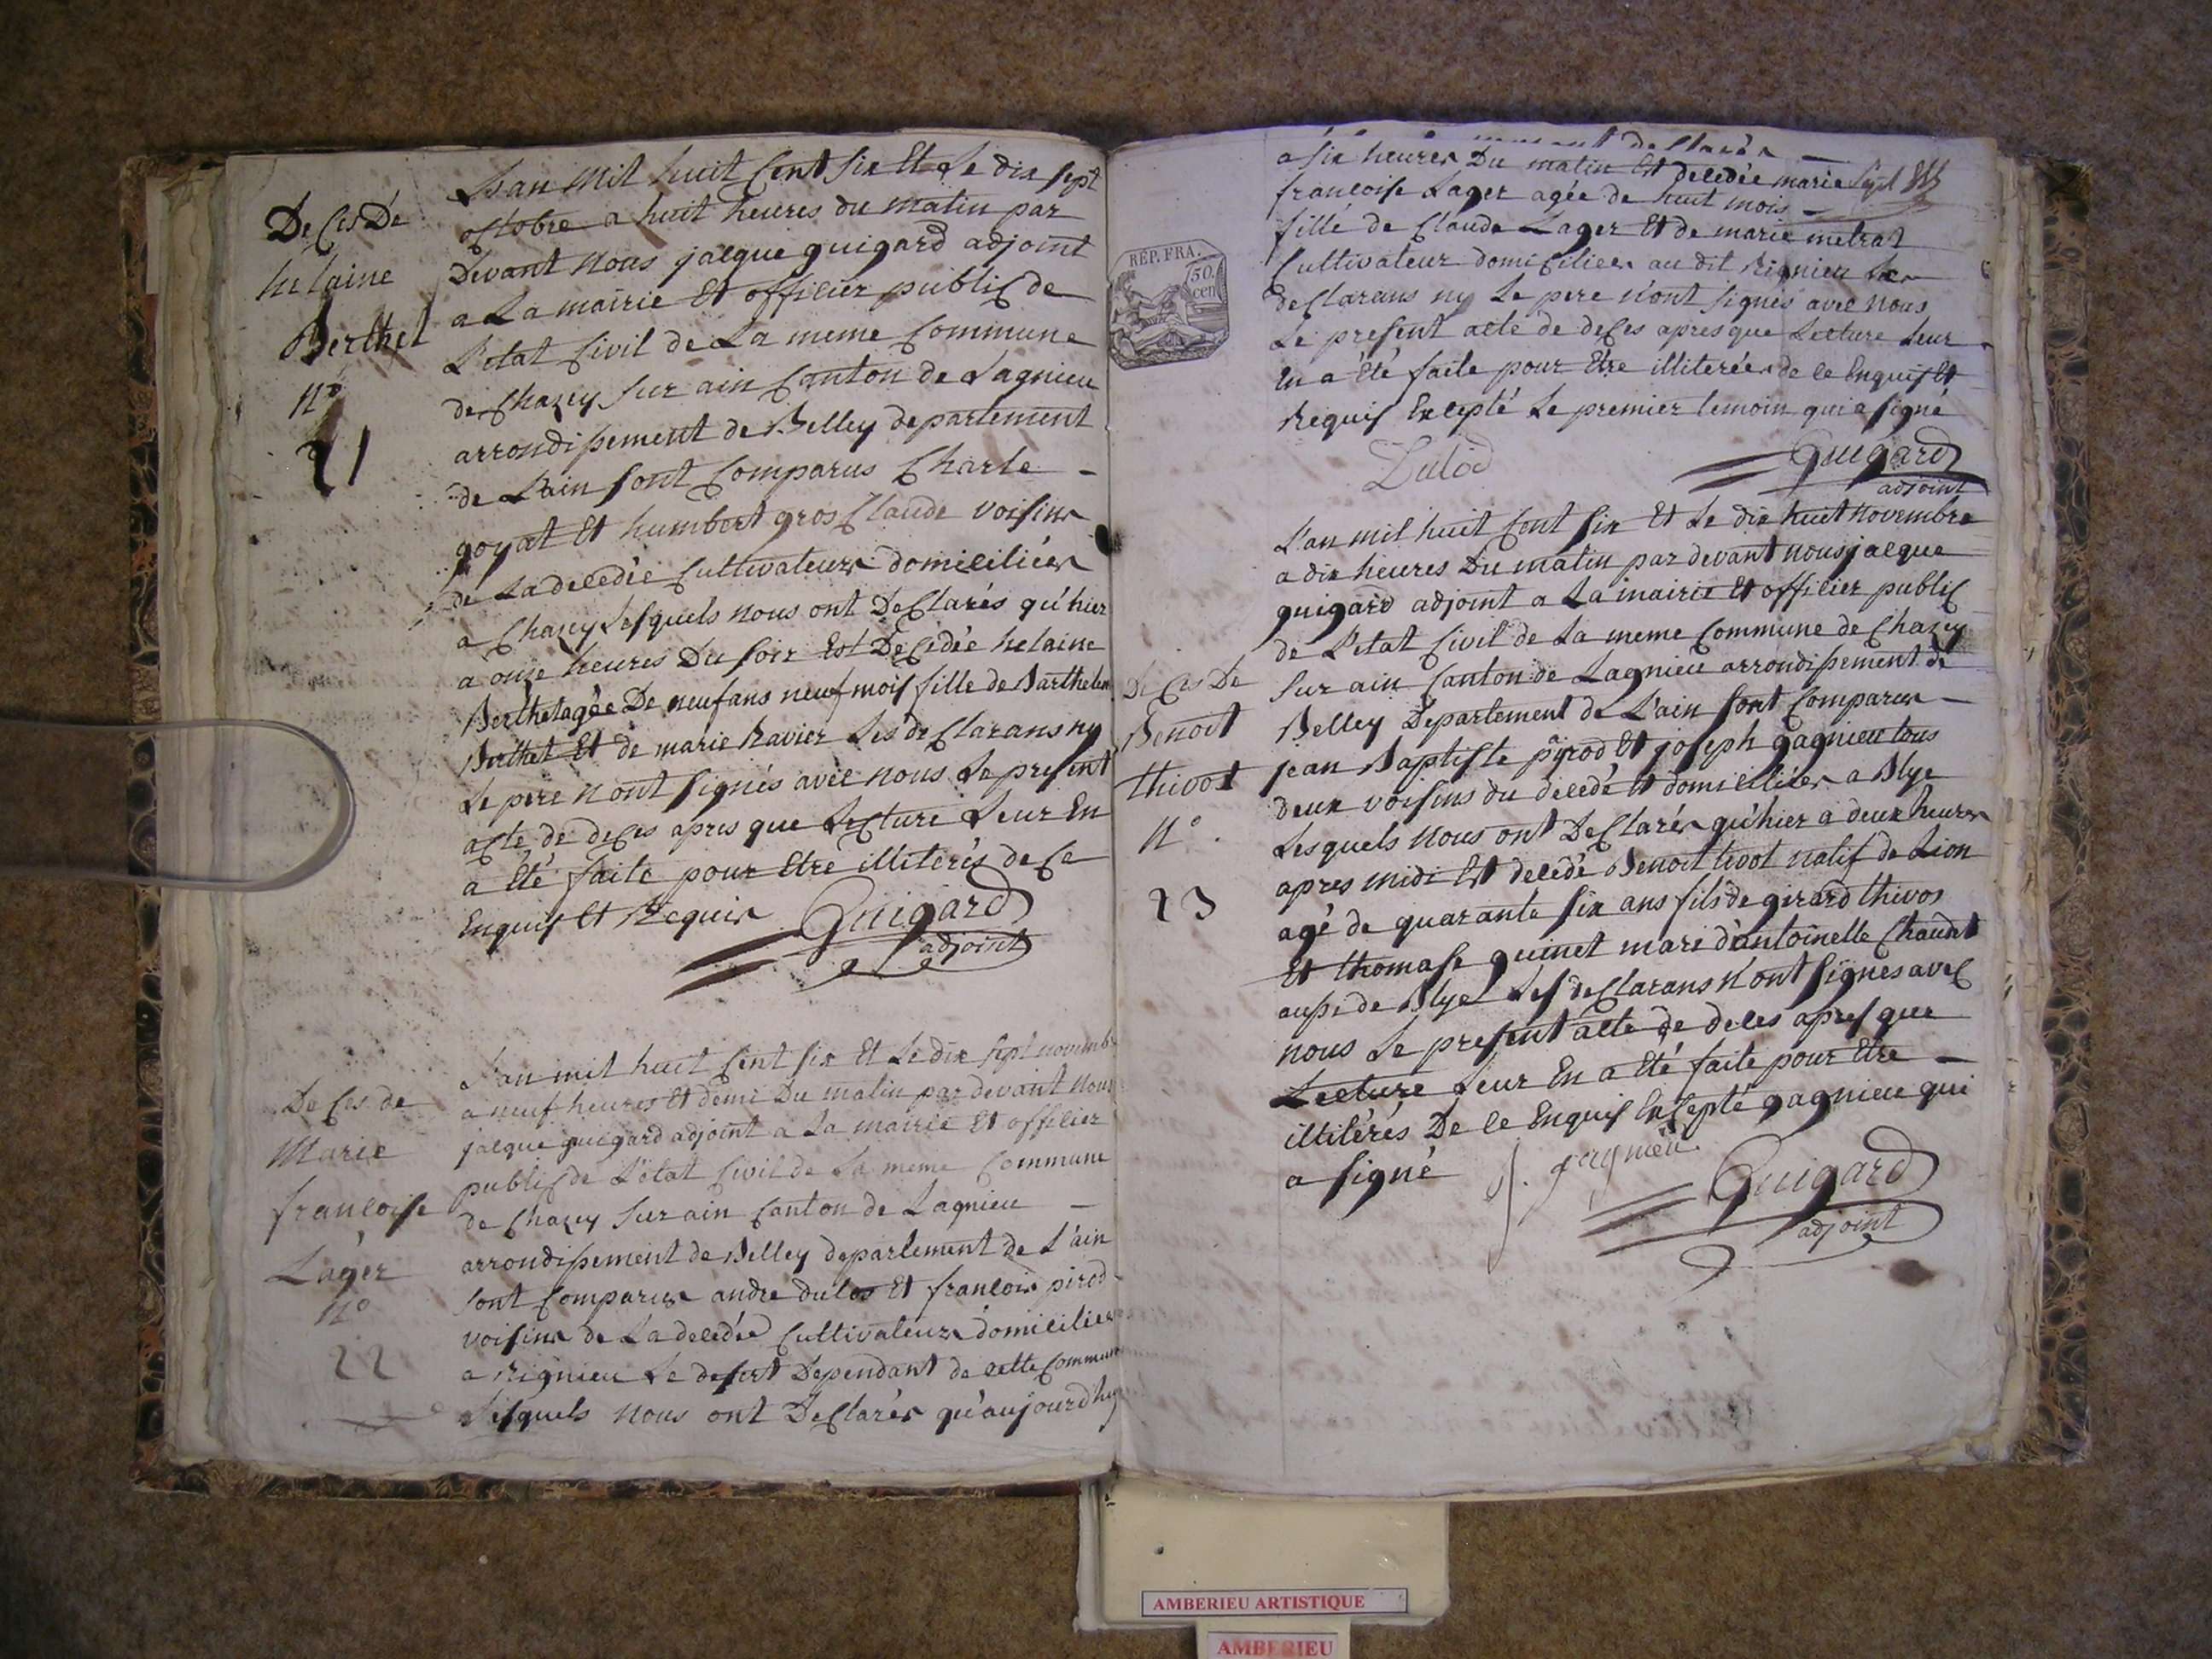 De Ces De
helaine
Berthet
N°
21
L'an mil huit Cent six Et Le dix sept
octobre a huit heures du matin par
devant nous jacque guigard adjoint
a La mairie Et officier public de
L'etat Civil de La meme Commune
de Chazey sur ain Canton de Lagnieu
arrondissement de Belley departement
de L'ain sont Comparus Charle -
goyat Et humbert gros Claude voisins
de La decedée Cultivateurs domiciliées
a Chazey Lesquels nous ont DeClarés qu'hier
a onze heures Du soir Est Decedée helaine
Berthet agée De neuf ans neuf mois fille de Barthelem
Berthet Et de marie Ravier Les deClarans ny
Le pere n'ont signés avec nous Le present
acte de deCes apres que LeCture Leur En
a Eté faite pour Etre illiterés de Ce
Enquis Et Requis Guigard
adjoint
De Ces de
Marie
francoise
Lager
N°
22
L'an mil huit Cent six Et Le dix sept novembre
a neuf heures Et demi Du matin par devant nous
jacque guigard adjoint a La mairie Et officier
public de L'etat Civil de La meme Commune
de Chazey sur ain Canton de Lagnieu -
arrondissement de Belley departement de L'ain
sont Comparus andre dulos Et francois pirod
voisins de La decedée Cultivateurs domicilies
a Rignieu Le desert Dependant de cette Commune
Lesquels nous ont DeClarés qu'aujourdhuy
a six heures Du matin Est decedée marie
francoise Lager agée de huit mois -
fille de Claude Lager Et de marie metrat
Cultivateur domiciliés au dit Rignieu Les
deClarans ny Le pere n'ont signés avec nous
Le present acte de deCes apres que Lecture Leur
En a été faite pour Etre illiterées de ce Enquis Et
Requis Excepté Le premier temoin qui a signé
RÉP. FRA.
50
cen
Dulod
Guigard
adjoint
De Ces De
Benoit
thivot
N°.
23
L'an mil huit Cent six Et Le dix huit novembre
a dix heures Du matin par devant nous jacque
guigard adjoint a La mairie Et officier public
de L'etat Civil de La meme Commune de Chazey
sur ain Canton de Lagnieu arrondissement de
Belley Departement de L'ain sont Comparus -
jean Baptiste pirod Et joseph gagnieu tous
deux voisins du decedé Et domiciliées a Blye
Lesquels nous ont DeClarés qu'hier a deux heures
apres midi Est decedé Benoit tivot natif de Lion
agé de quarante six ans fils de girard thivos
Et thomase guinet mari d'antoinette Chaudet
aussi de Blye Les deClarans n'ont signés avec
nous Le present acte de deces apres que
Lecture Leur En a Eté faite pour Etre -
illitérés De ce Enquis Excepté gagnieu qui
a signé J. gagnieu
Guigard
adjoint
AMBERIEU ARTISTIQUE
AMBERIEU